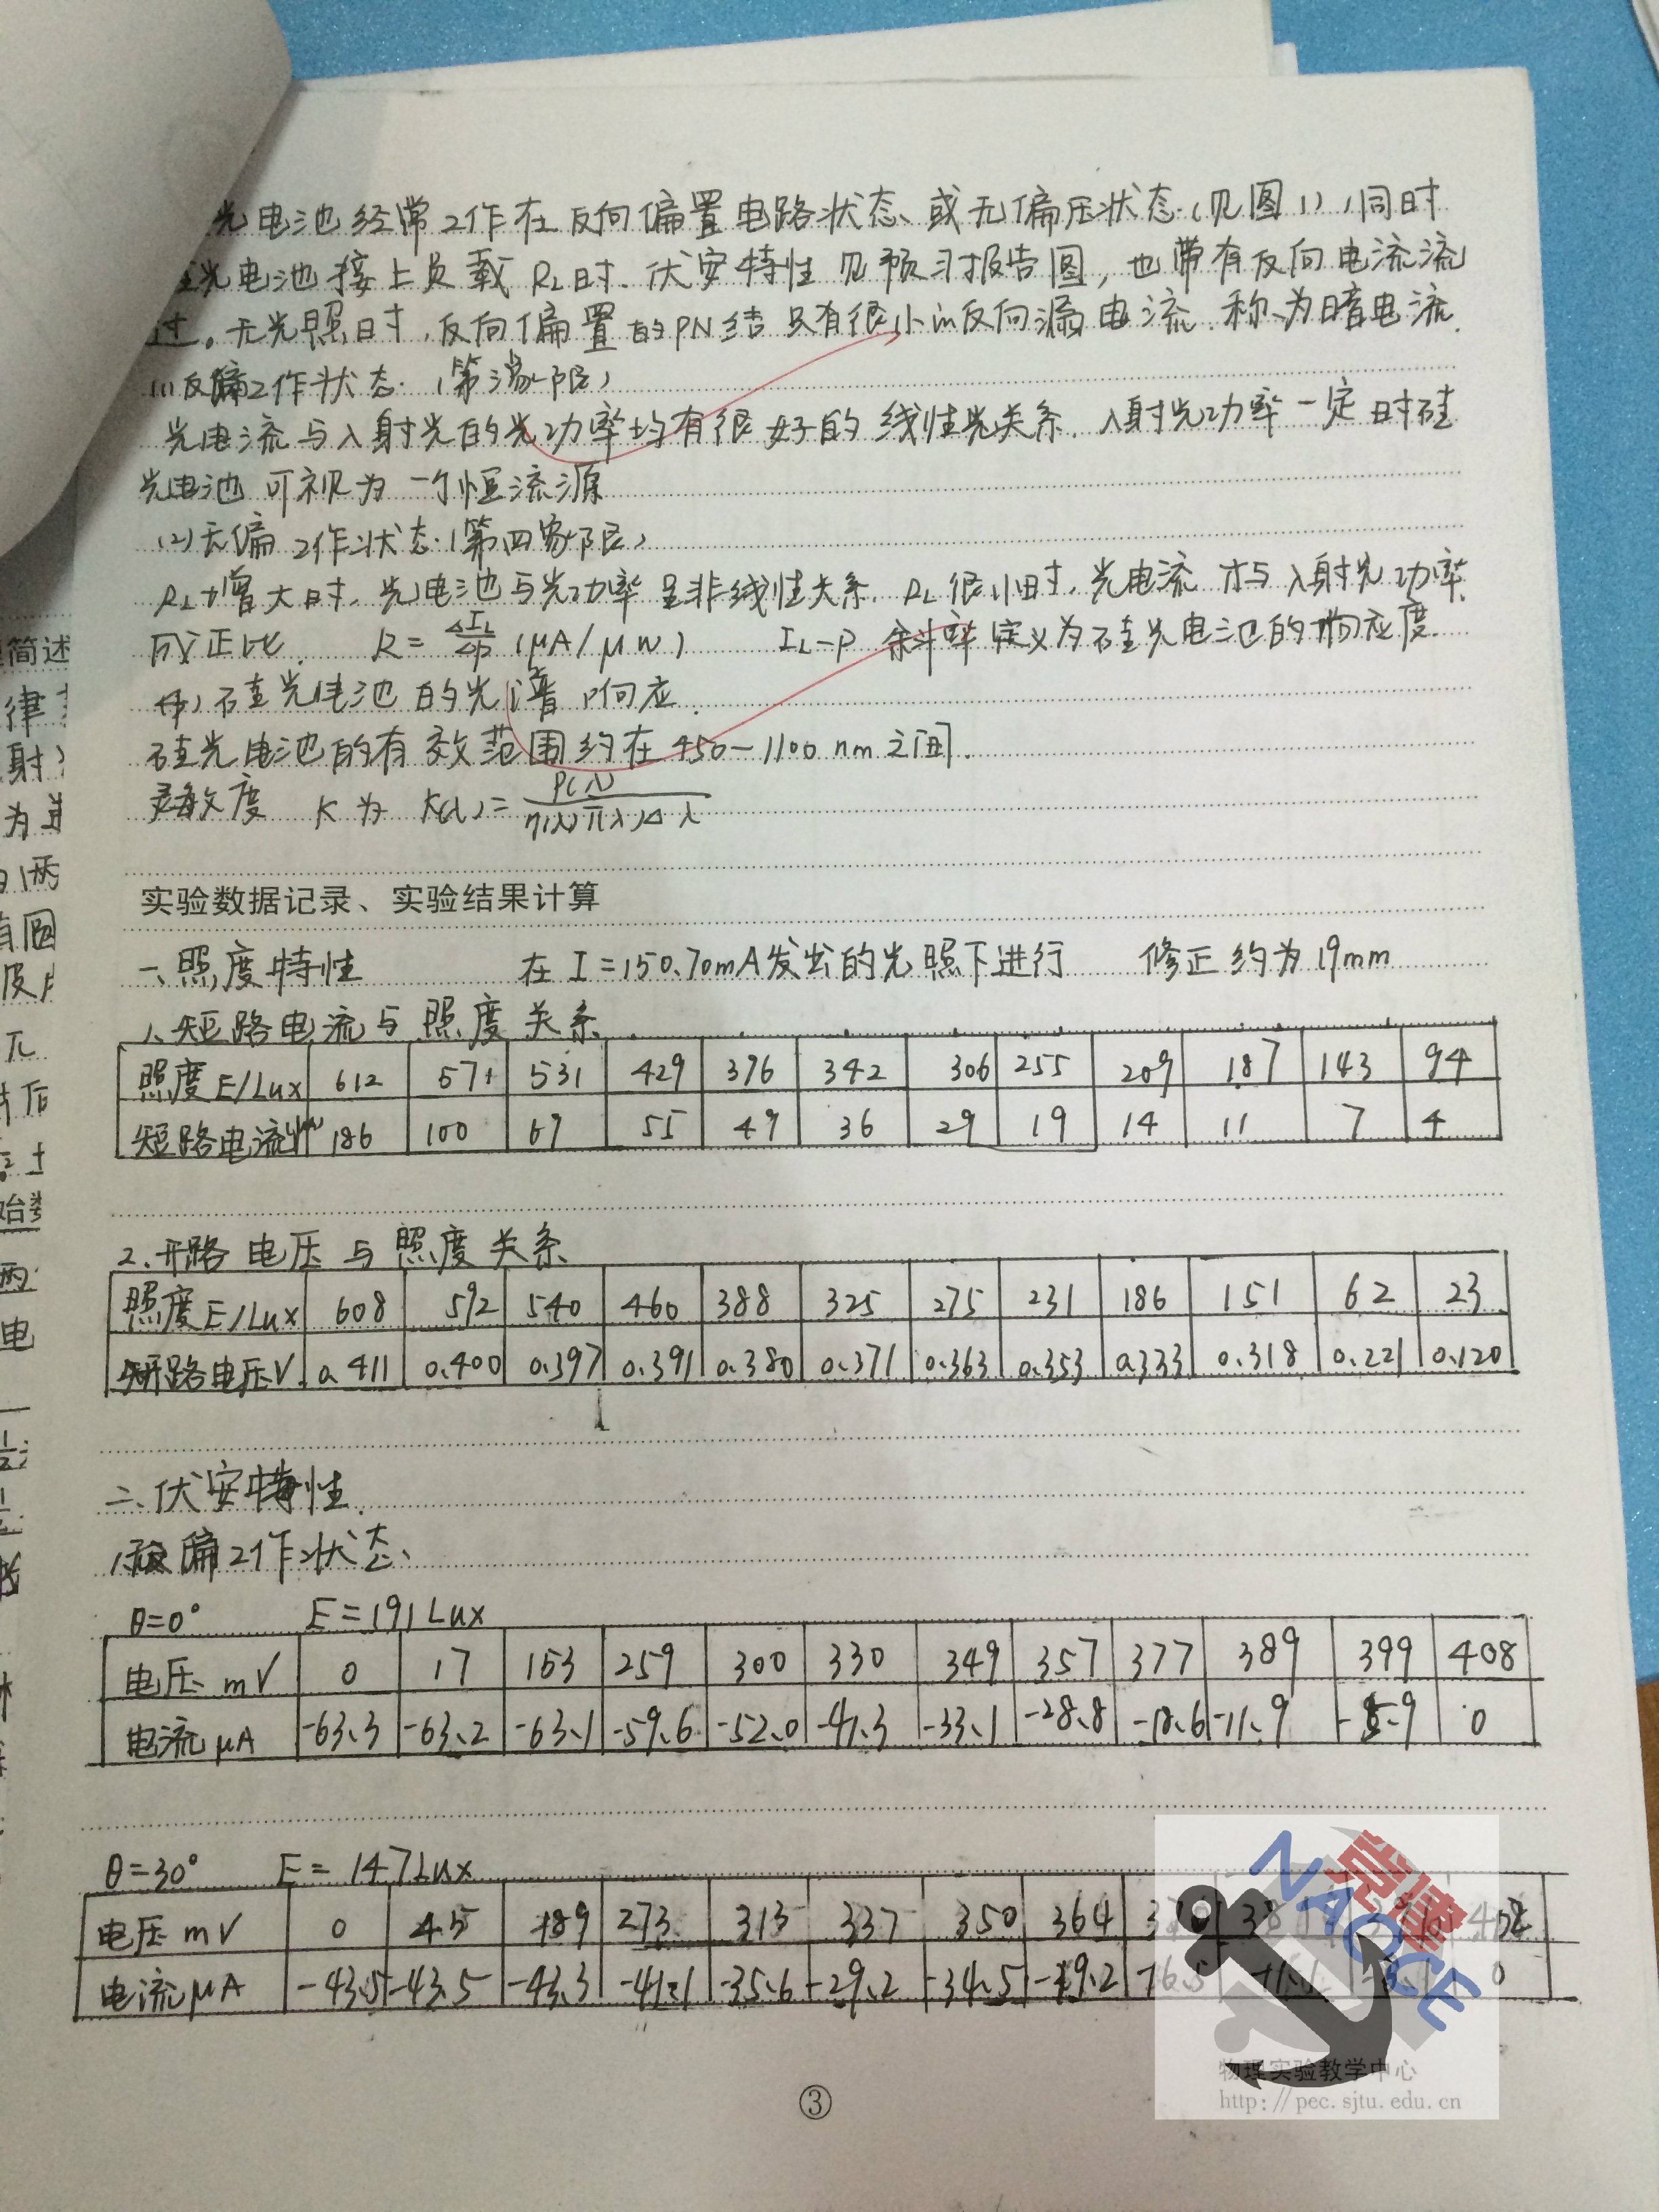 光电池经常工作在反向偏置电路状态、或无偏压状态(见图1),同时
光电池接上负载RL时.伏安特性见预习报告图,也带有反向电流流
过。无光照时,反向偏置的PN结只有很小的反向漏电流.称为暗电流.
(1)反偏工作状态.(第三象限)
光电流与入射光的光功率均有很好的线性关系.入射光功率一定时硅
光电池可视为一个恒流源
(2)无偏工作状态.(第四象限)
RL增大时.光电池与光功率呈非线性关系.RL很小时,光电流才与入射光功率
成正比. R=ΔIL/ΔP (μA/μW) IL-P斜率定义为硅光电池的响应度.
硅光电池的光谱响应.
硅光电池的有效范围约在450-1100nm之间.
灵敏度K为
实验数据记录、实验结果计算
一、照度特性 在I=150.70mA发出的光照下进行 修正约为19mm
1、短路电流与照度关系
照度E/Lux 612 571 531 429 376 342 306 255 209 187 143 94
短路电流 186 100 55 49 36 29 19 14 11 7 4
2.开路电压与照度关系
照度E/Lux 608 592 540 460 388 325 275 231 186 151 62 23
开路电压V 0.411 0.400 0.397 0.391 0.380 0.371 0.363 0.353 0.333 0.318 0.221 0.120
二、伏安特性.
1.无偏工作状态、
θ=0° E=191Lux
电压mV 0 17 153 259 300 330 349 357 377 389 399 408
电流μA -63.3 -63.2 -63.1 -59.6 -52.0 -41.3 -33.1 -28.8 -18.6 -11.9 0
θ=30° E=147Lux
电压mV 0 45 189 273 313 337 350 364
电流μA -43.5 -43.5 -43.3 -41.1 -35.6 -29.2 -34.5 -19.2 0
党建
NAOCE
物理实验教学中心
http://pec.sjtu.edu.cn
③
简述
律
射
为